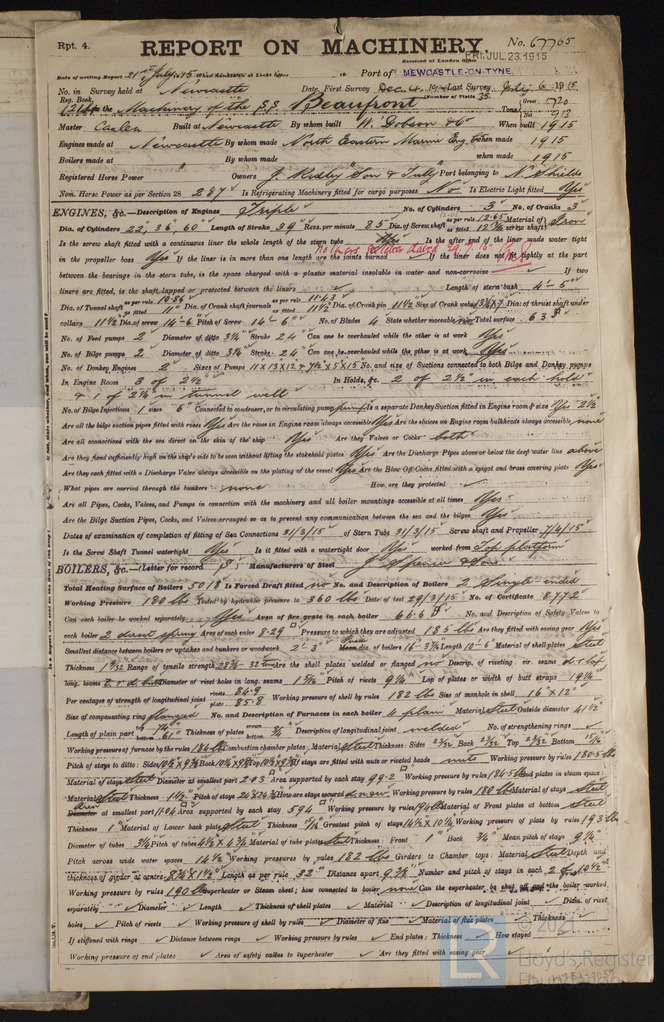 Rpt. 4.
REPORT ON MACHINERY.
No. 67705
Received at London Office
FRI. JUL. 23. 1915
Date of writing Report 21st July 1915 When handed in at Local Office 10 Port of NEWCASTLE-ON-TYNE
No. in Survey held at Newcastle Date, First Survey Dec. 4. 1914 Last Survey July 6 1915
Reg. Book. (Number of Visits 35
on the Machinery of the S.S Beaufront Tons Gross 1720 Net 973
Master Built at Newcastle By whom built W. Dobson & Co When built 1915
Engines made at Newcastle By whom made North Eastern Marine Eng. Co when made 1915
Boilers made at " By whom made " when made 1915
Registered Horse Power Owners J. Ridley Son & Tully Port belonging to N. Shields
Nom. Horse Power as per Section 28 237 Is Refrigerating Machinery fitted for cargo purposes No Is Electric Light fitted Yes
ENGINES, &c.—Description of Engines Triple No. of Cylinders 3 No. of Cranks 3
Dia. of Cylinders 22", 36, 60" Length of Stroke 39" Revs. per minute 85 Dia. of Screw shaft as per rule 12.65 Material of screw shaft Iron
Is the screw shaft fitted with a continuous liner the whole length of the stern tube Is the after end of the liner made water tight
in the propeller boss Yes If the liner is in more than one length are the joints burned ✓ If the liner does not fit tightly at the part
between the bearings in the stern tube, is the space charged with a plastic material insoluble in water and non-corrosive ✓ If two
liners are fitted, is the shaft lapped or protected between the liners ✓ Length of stern bush 4'-5"
Dia. of Tunnel shaft as per rule 10.86 as fitted 11" Dia. of Crank shaft journals as per rule 11.43 as fitted 11½ Dia. of Crank pin 11½ Size of Crank webs Dia. of thrust shaft under
collars 11½ Dia. of screw 14-6 Pitch of Screw 14-6" No. of Blades 4 State whether moveable no Total surface 63
No. of Feed pumps 2 Diameter of ditto 3¼ Stroke 24 Can one be overhauled while the other is at work Yes
No. of Bilge pumps 2 Diameter of ditto 3¼ Stroke 24" Can one be overhauled while the other is at work Yes
No. of Donkey Engines 2 Sizes of Pumps No. and size of Suctions connected to both Bilge and Donkey pumps
In Engine Room 3 of 2½ In Holds, &c. 2 of 2½ in each hold
& 1 of 2½ in tunnel well
No. of Bilge Injections 1 sizes 6" Connected to condenser, or to circulating pump pump Is a separate Donkey Suction fitted in Engine room & size Yes 2½
Are all the bilge suction pipes fitted with roses Yes Are the roses in Engine room always accessible Yes Are the sluices on Engine room bulkheads always accessible none
Are all connections with the sea direct on the skin of the ship Yes Are they Valves or Cocks both
Are they fixed sufficiently high on the ship's side to be seen without lifting the stokehold plates Yes Are the Discharge Pipes above or below the deep water line above
Are they each fitted with a Discharge Valve always accessible on the plating of the vessel Yes Are the Blow Off Cocks fitted with a spigot and brass covering plate Yes
What pipes are carried through the bunkers none How are they protected ✓
Are all Pipes, Cocks, Valves, and Pumps in connection with the machinery and all boiler mountings accessible at all times Yes
Are the Bilge Suction Pipes, Cocks, and Valves arranged so as to prevent any communication between the sea and the bilges Yes
Dates of examination of completion of fitting of Sea Connections 31/3/15 of Stern Tube 31/3/15 Screw shaft and Propeller 7/4/15
Is the Screw Shaft Tunnel watertight Yes Is it fitted with a watertight door Yes worked from Top platform
BOILERS, &c.—(Letter for record S) Manufacturers of Steel J. Spencer & Sons
Total Heating Surface of Boilers 5018 Is Forced Draft fitted no No. and Description of Boilers 2 Single ended
Working Pressure 180 lbs Tested by hydraulic pressure to 360 lbs Date of test 29/3/15 No. of Certificate 8772
Can each boiler be worked separately Yes Area of fire grate in each boiler 66.6 No. and Description of Safety Valves to
each boiler 2 direct spring Area of each valve 8.29 Pressure to which they are adjusted 185 lbs Are they fitted with easing gear Yes
Smallest distance between boilers or uptakes and bunkers or woodwork 2'-3" Mean dia. of boilers 16-3¾ Length 10-6 Material of shell plates Steel
Thickness 1 9/32 Range of tensile strength Are the shell plates welded or flanged no Descrip. of riveting: cir. seams d.r. lap
long. seams Diameter of rivet holes in long. seams Pitch of rivets 9¼ Lap of plates or width of butt straps 19¼
Per centages of strength of longitudinal joint rivets 84.9 plate 85.8 Working pressure of shell by rules 182 lbs Size of manhole in shell 16"x12"
Size of compensating ring flanged No. and Description of Furnaces in each boiler 4 plain Material Steel Outside diameter 41½
Length of plain part Thickness of plates ¾ Description of longitudinal joint welded No. of strengthening rings ✓
Working pressure of furnace by the rules 184 lbs Combustion chamber plates: Material Steel Thickness: Sides 23/32 Back 23/32 Top 23/32 Bottom 15/16
Pitch of stays to ditto: Sides Back Top If stays are fitted with nuts or riveted heads nuts Working pressure by rules 180.5 lbs
Material of stays Steel Diameter at smallest part 2.03 Area supported by each stay 99.2 Working pressure by rules 184.5 lbs End plates in steam space:
Material Steel Thickness 1½ Pitch of stays How are stays secured Working pressure by rules 180 lbs Material of stays Steel
Area at smallest part Area supported by each stay 594 Working pressure by rules 194 lbs Material of Front plates at bottom Steel
Thickness 1" Material of Lower back plate Steel Thickness Greatest pitch of stays Working pressure of plate by rules 193 lbs
Diameter of tubes 3¼ Pitch of tubes Material of tube plates Steel Thickness: Front 1" Back ¾" Mean pitch of stays 9¼
Pitch across wide water spaces 14½ Working pressures by rules 182 lbs Girders to Chamber tops: Material Steel Depth and
thickness of girder at centre Length as per rule 32" Distance apart 9¾ Number and pitch of stays in each
Working pressure by rules 190 lbs Superheater or Steam chest; how connected to boiler none Can the superheater be shut off and the boiler worked
separately ✓ Diameter ✓ Length ✓ Thickness of shell plates ✓ Material ✓ Description of longitudinal joint ✓ Diam. of rivet
holes ✓ Pitch of rivets ✓ Working pressure of shell by rules ✓ Diameter of flue ✓ Material of flue plates ✓ Thickness ✓
If stiffened with rings ✓ Distance between rings ✓ Working pressure by rules ✓ End plates: Thickness ✓ How stayed ✓
Working pressure of end plates ✓ Area of safety valves to superheater ✓ Are they fitted with easing gear ✓
© 2021
LR
Lloyd's Register
Foundation